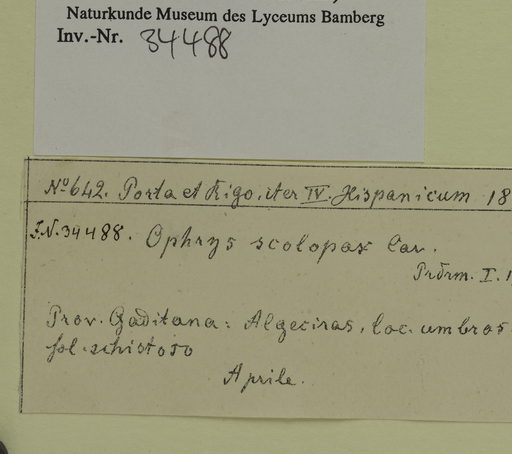 Naturkunde Museum des Lyceums Bamberg
Inv.-Nr. 34488
No 642. Porta et Rigo. iter IV. Hispanicum 18
I.N. 34488. Ophrys scolopax Cav.
Prdrm. I.
Prov. Gaditana: Algeciras, loc. umbros
sol. schistoso
Aprile.